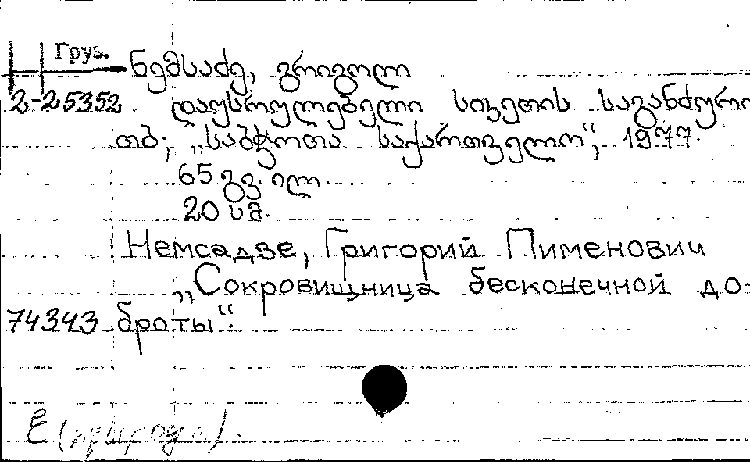 Груз.
ნემსაძე, გრიგოლ
2-25352 დაუსრულებელი სიკეთის საგანძური
თბ; „საბჭოთა საქართველო“, 1977.
65 გვ. ილ.
20 სმ.
Немсадзе, Григорий Пименович
„Сокровищница бесконечной до-
74343 броты“.
Е (природа).